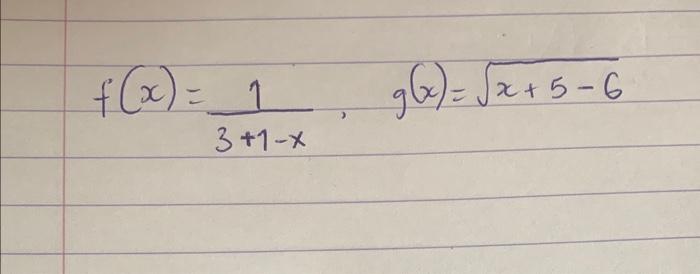 f(x) = 1/(3+1-x) , g(x) = √(x+5-6)